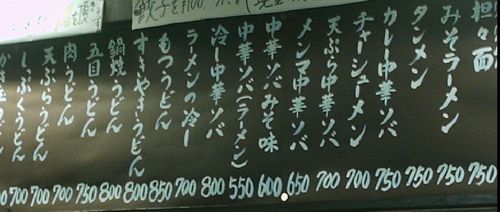 担々面 750
みそラーメン 750
タンメン 750
カレー中華ソバ 750
チャーシューメン 700
天ぷら中華ソバ 700
メンマ中華ソバ 650
中華ソバみそ味 600
中華ソバ(ラーメン) 550
冷し中華ソバ 800
ラーメンの冷し 700
もつうどん 850
すきやきうどん 800
鍋焼うどん 800
五目うどん 750
肉うどん 700
天ぷらうどん 700
しっぷくうどん 700